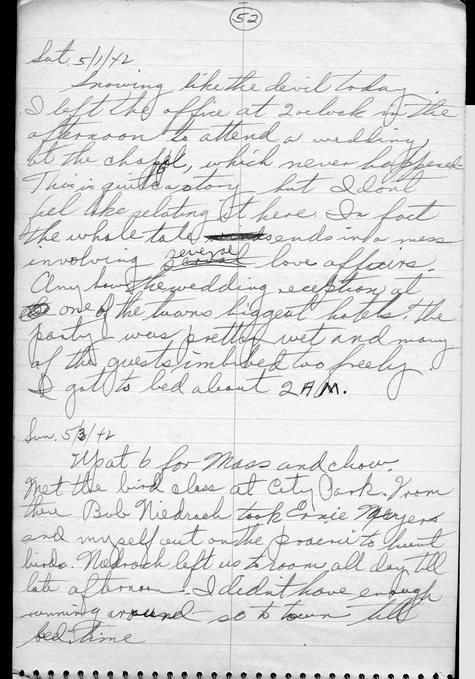 52
Sat. 5/1/42
Snowing like the devil today.
I left the office at 2 oclock in the
afternoon to attend a wedding
at the chapel, which never happened
This is quite a story but I dont
feel like relating it here. In fact
the whole tale ends in a mess
involving several love affairs.
Any how the wedding reception at
one of the towns biggest hotels. The
party was pretty wet and many
of the guests imbibed too freely.
I got to bed about 2 A.M.
Sun. 5/3/42
Up at 6 for Mass and chow.
Met the bird class at City Park. From
there Bob Niedrach took Ernie Meyers
and myself out on the prairie to hunt
birds. Niedrach left us to roam all day till
late afternoon. I didn't have enough
running around so to town till
bed time